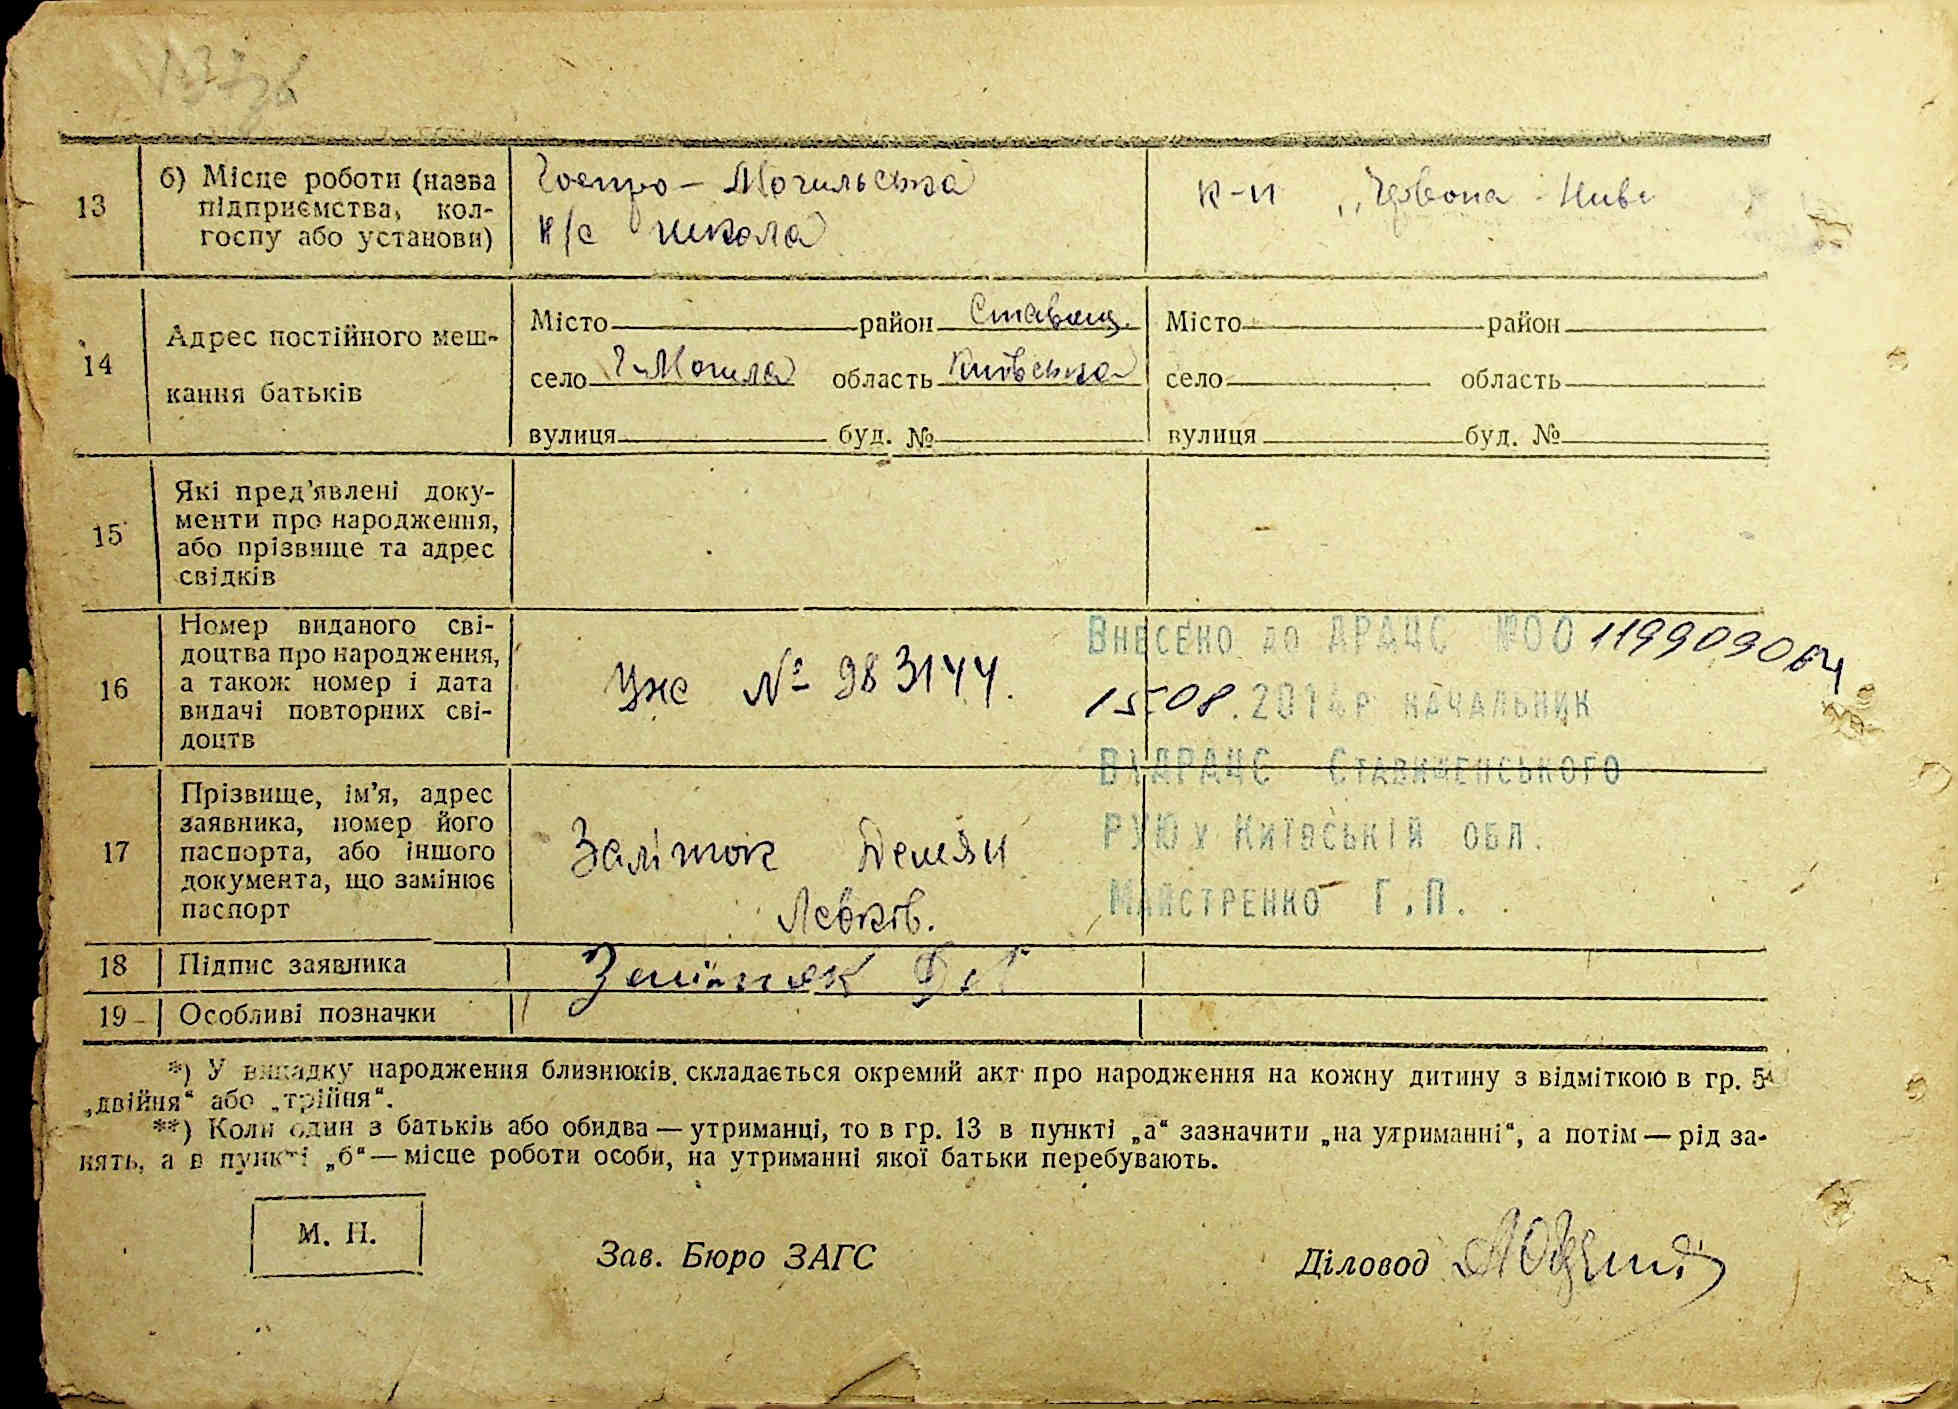 13
б) Місце роботи (назва
підприємства, кол-
госпу або установи)
Гостро-Могильська
н/с школа
к-п „Червона Нива
14
Адрес постійного меш-
кання батьків
Місто район Ставищ.
село Г-Могила область Київська
вулиця буд. №
Місто район
село область
вулиця буд. №
15
Які пред’явлені доку-
менти про народження,
або прізвище та адрес
свідків
16
Номер виданого сві-
доцтва про народження,
а також номер і дата
видачі повторних сві-
доцтв
№ 983144.
Внесено до ДРАЦС №00119909064
15.08.2014р начальник
ВДРАЦС Ставищенського
РУЮ у Київській обл.
Майстренко Г.П.
17
Прізвище, ім’я, адрес
заявника, номер його
паспорта, або іншого
документа, що замінює
паспорт
Заліток Демян
Левків.
18
Підпис заявника
19
Особливі позначки
*) У випадку народження близнюків складається окремий акт про народження на кожну дитину з відміткою в гр. 5
„двійня“ або „трійня“.
**) Коли один з батьків або обидва — утриманці, то в гр. 13 в пункті „а“ зазначити „на утриманні“, а потім — рід за-
нять, а в пункті „б“ — місце роботи особи, на утриманні якої батьки перебувають.
М. П.
Зав. Бюро ЗАГС
Діловод